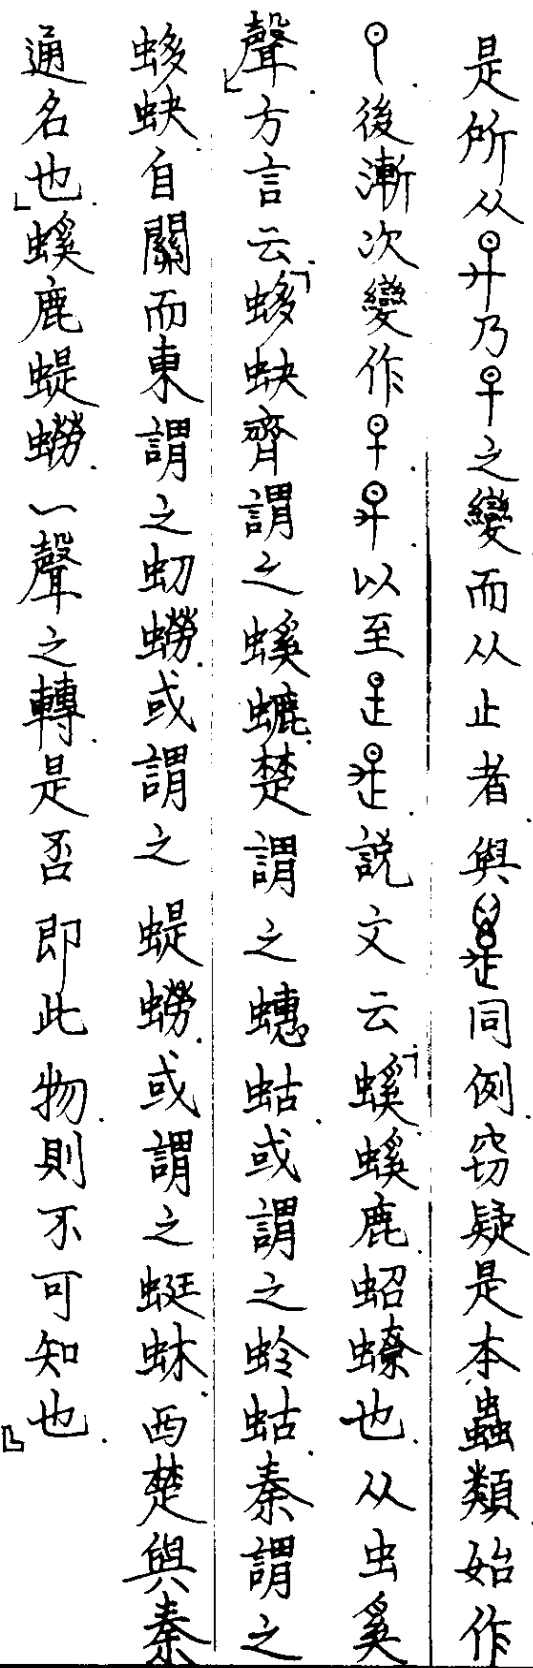 是所从乃之變而从止者與同例.窃疑是本蟲類.始作
後漸次變作.以至.說文云「螇螇鹿.蛁蟟也.从虫奚
聲.」方言云.「蛥蚗齊謂之螇螰.楚謂之蟪蛄.或謂之蛉蛄.秦謂之
蛥蚗.自關而東謂之虭蟧.或謂之蝭蟧.或謂之蜓蚞.西楚與秦
通名也.」螇鹿蝭蟧.一聲之轉.是否即此物則不可知也.』